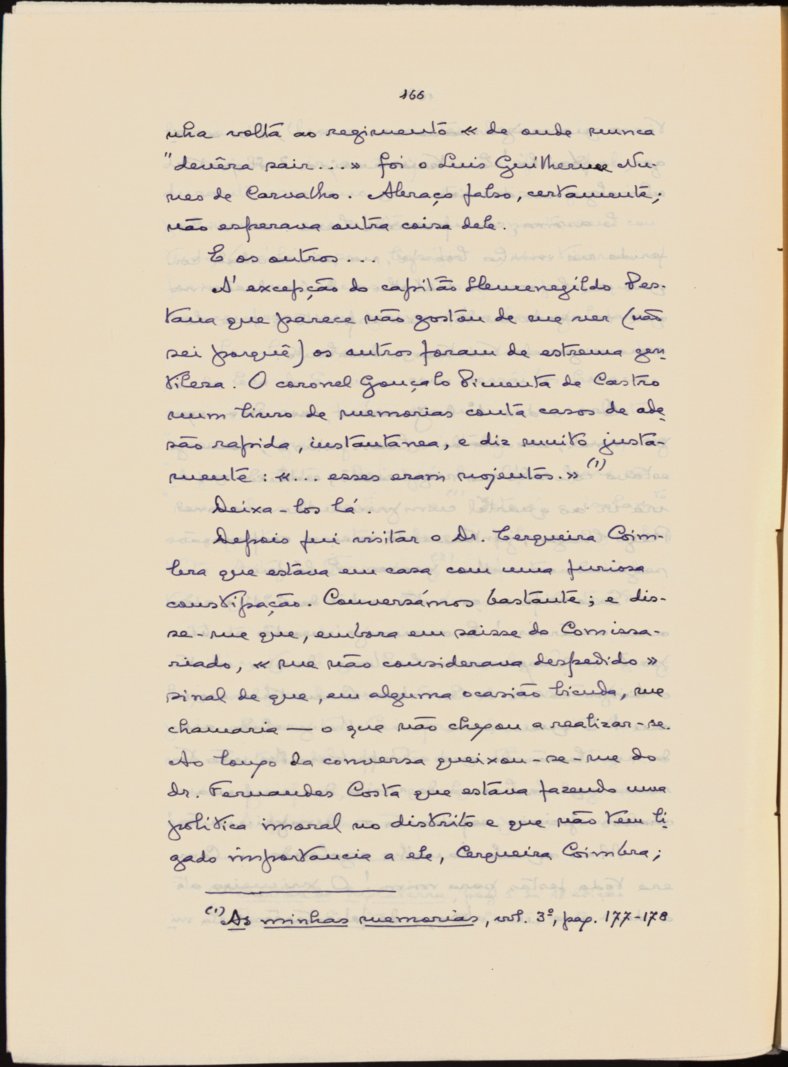 166
nha volta ao regimento « de onde nunca
"devêra sair...» foi o Luis Guilherme Nu-
nes de Carvalho. Abraço falso, certamente;
não esperava outra coisa dele.
E os outros...
A' excepção do capitão Hermenegildo Pes-
tana que parece não gostou de me ver (não
sei porquê) os outros foram de estrema gen-
tilesa. O coronel Gonçalo Pimenta de Castro
num livro de memorias conta casos de ade-
são rapida, instantanea, e diz muito justa-
mente: «... esses eram nojentos.» (1)
Deixa-los lá.
Depois fui visitar o Dr. Cerqueira Coim-
bra que estava em casa com uma furiosa
constipação. Conversámos bastante; e dis-
se-me que, embora eu saisse do Comissa-
riado, « me não considerava despedido »
sinal de que, em alguma ocasião bicuda, me
chamaria — o que não chegou a realizar-se.
Ao longo da conversa queixou-se-me do
dr. Fernandes Costa que estava fazendo uma
politica imoral no distrito e que não tem li-
gado importancia a ele, Cerqueira Coimbra;
(1) As minhas memorias, vol. 3º, pag. 177-178